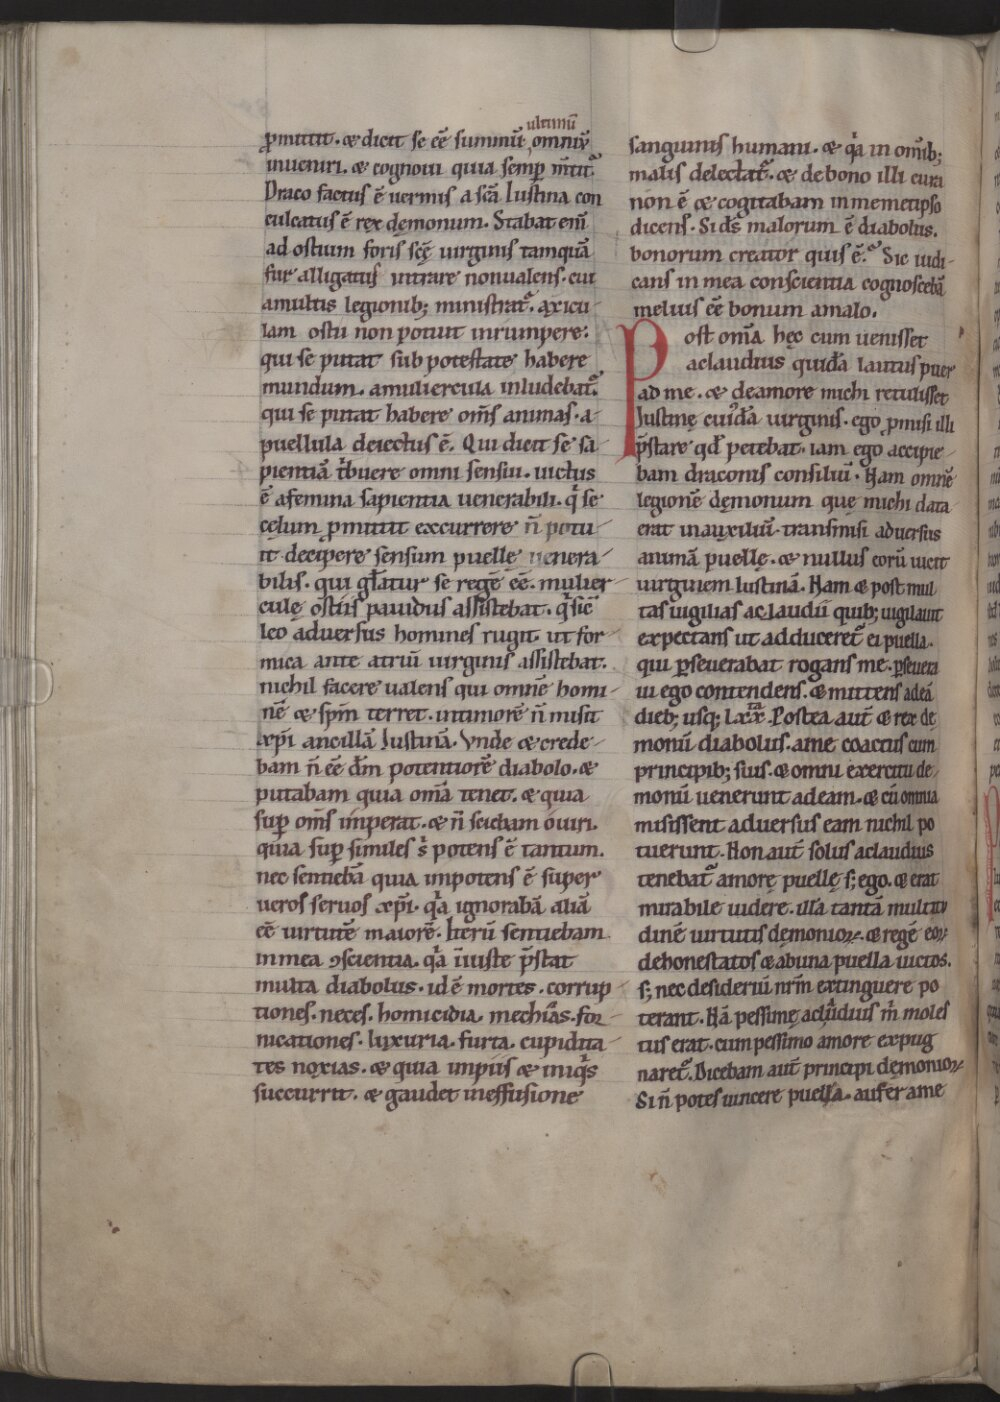 ultimū
ꝓmittit. & dicit se eē summū omniū
inueniri. & cognoui quia semꝑ m̄tit᷑.
Draco factus ē uermis a sc̄a Iustina con
culcatus ē rex dęmonum. Stabat enī
ad ostium foris scę̄ uirginis tamquā
fur alligatus intrare nonualens. cui
amultis legionib; ministrat᷑. axicu
lam ostii non potuit inrumpere.
qui se putat sub potestate habere
mundum. amuliercula inludebat᷑.
qui se putat habere om̄s animas. a
puellula deiectus ē. Qui dicit se sa
pientiā t̄buere omni sensui. uictus
ē afemina sapientia uenerabili. qͥ se
cęlum ꝓmittit excurrere n̄ potu
it decipere sensum puellę uenera
bilis. qui gl̄atur se regē eē. mulier
culę ostiis pauidus assistebat. qͥ sic̄
leo aduersus homines rugit ut for
mica ante atriū uirginis assistebat.
nichil facere ualens qui omnē homi
nē & sp̄m terret. intimorē n̄ misit
xp̄i ancillā Iustinā. Vnde & crede
bam n̄ eē dm̄ potentiorē diabolo. &
putabam quia om̄a tenet. & quia
suꝑ om̄s imperat. & n̄ sciebam
quia suꝑ similes s̄ potens ē tantum.
nec sentiebā quia impotens ē super
ueros seruos xp̄i. qͣ ignorabā aliā
eē uirtutē maiorē. Iterū sentiebam
inmea ꝯscientia. qͣ iniuste p̄stat
multa diabolus. id ē mortes. corrup
tiones. neces. homicidia. mechias. for
nicationes. luxuria. furta. cupidita
tes noxias. & quia impiis & iniqͥs
succurrit. & gaudet ineffusione
sanguinis humani. & qͣ in om̄ib;
malis delectat᷑. & de bono illi cura
non ē & cogitabam inmemetipso
dicens. Si ds̄ malorum ē diabolus.
bonorum creator quis ē. Sic iudi
cans in mea conscientia cognoscebā
melius eē bonum amalo.
Post om̄a hęc cum uenisset
aclaudius quidā lautus puer
ad me. & deamore michi retulisset
Iustinę cuiꝰdā uirginis. ego ꝓmisi illi
p̄stare qd̄ petebat. iam ego accipie
bam draconis consiliū. Nam omnē
legionē dęmonum quę michi data
erat inauxiliū. transmisi aduersus
animā puellę. & nullus eorū uicit
uirginem Iustinā. Nam & post mul
tas uigilias aclaudii quib; uigilauit
expectans ut adduceret᷑ ei puella.
qui ꝑseuerabat rogans me. ꝑseuera
ui ego contendens. & mittens adeā
dieb; usq; lxx. Postea aut̄ & rex de
moniū diabolus. ame coactus cum
principib; suis. & omni exercitu de
moniū uenerunt adeam. & cū omnia
misissent aduersus eam nichil po
tuerunt. Non aut̄ solus aclaudius
tenebat᷑ amore puellę s; ego. & erat
mirabile uidere. illa tantā multitu
dinē uirtutis dęmonioꝝ. & regē eoꝝ
dehonestatos & abuna puella uictos.
s; nec desideriū nrm̄ extinguere po
terant. Nā pessimę aclaudius m̄ moles
tus erat. cum pessimo amore expug
naret᷑. Dicebam aut̄ principi dęmonioꝝ.
Si n̄ potes uincere puella. aufer ame